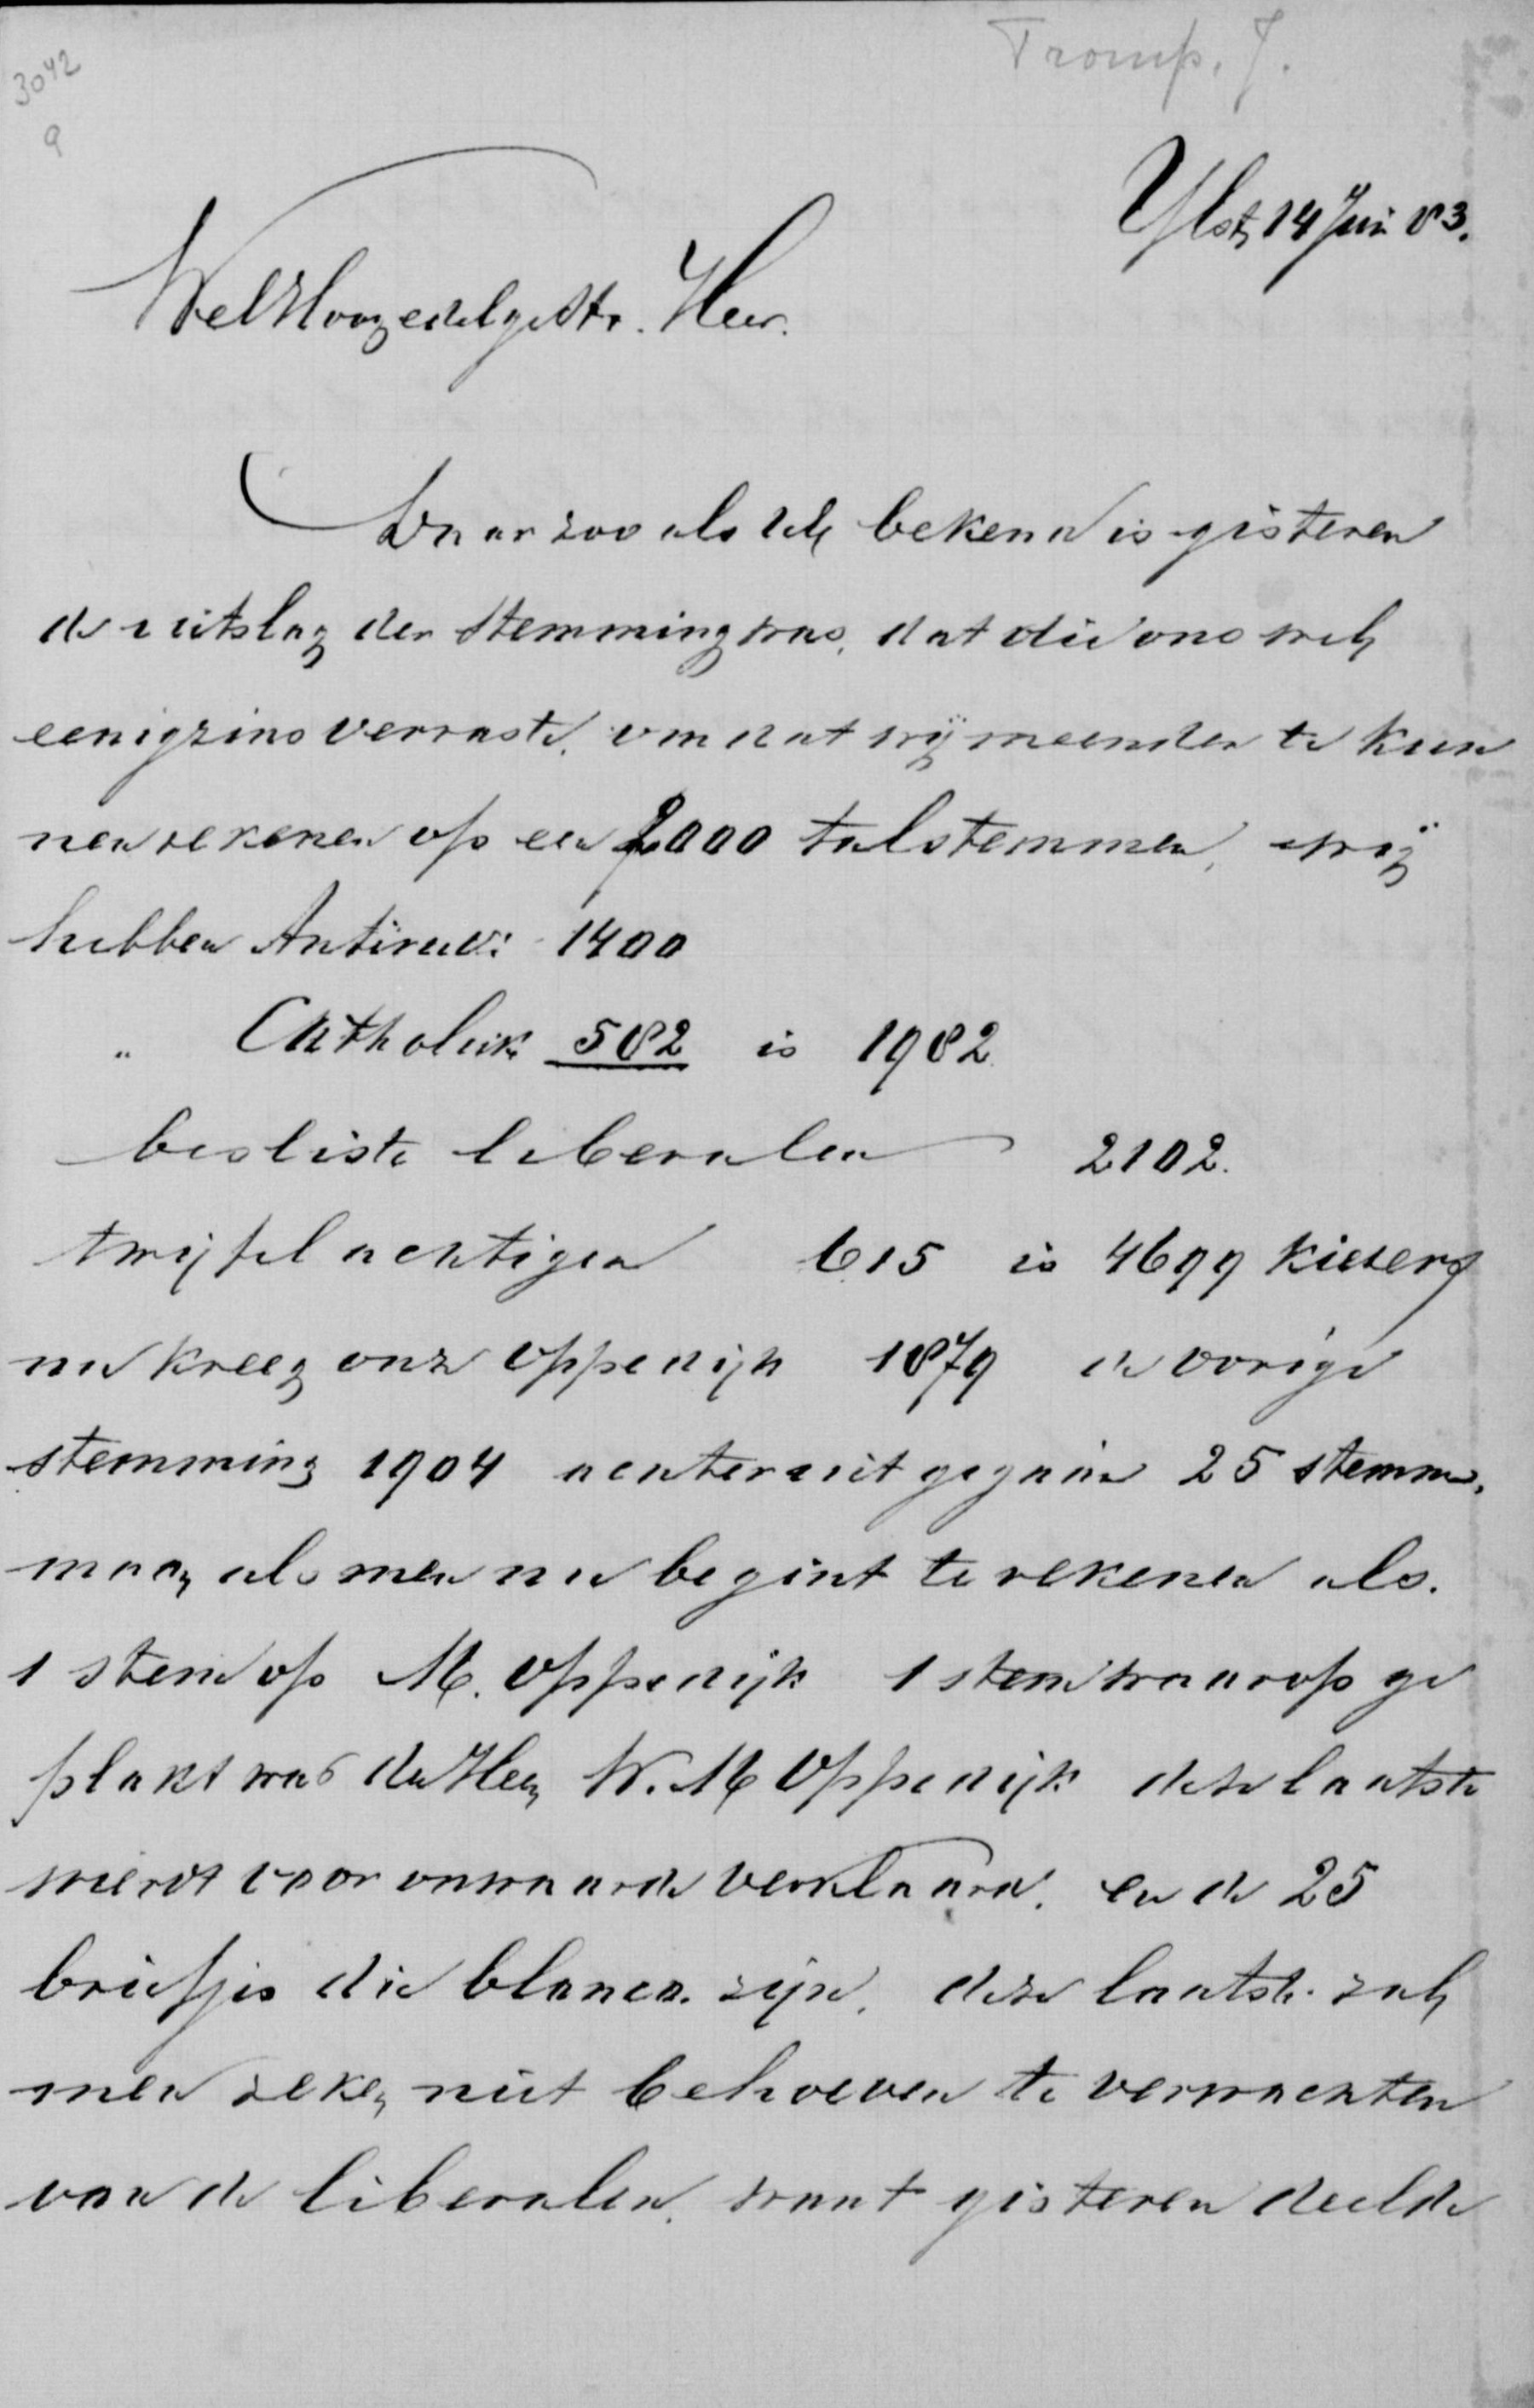 Tromp. J.
3042
9
Ylst, 14 Juni 83.
WelHoogedelgestr. Heer.
Daar zoo als UEd bekend is gisteren
de uitslag der stemming was, dat die ons wel
eenigzins verraste, om dat wij meenden te kun
nen rekenen op een 2000 tal stemmen, wij
hebben Antirev: 1400
" Catholiek 582 is 1982
besliste liberalen 2102.
twijfelachtigen 615 is 4699 kiezers
nu kreeg onze Oppedijk 1879 de vorige
stemming 1904 achteruit gegaan 25 stemm.
maar als men nu begint te rekenen als.
1 stem op M. Oppedijk 1 stem waarop ge
plakt was den Heer W. M Oppedijk deze laatste
wierdt voor onwaarde verklaard. en de 25
briefjes die blanco zijn, deze laatste zal
men zeker niet behoeven te verwachten
van de liberalen, want gisteren deelde